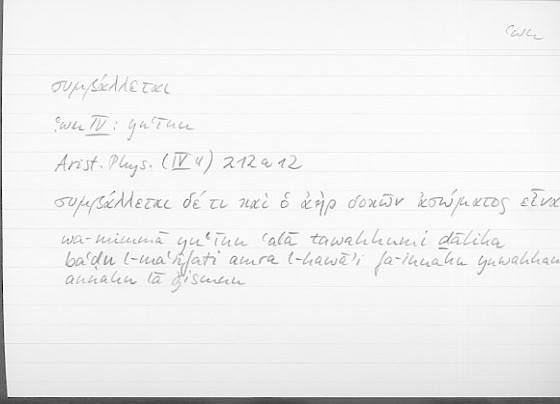 ʿwn
συμβάλλεται
ʿwn IV: yuʿīnu
Arist. Phys. (IV 4) 212 a 12
συμβάλλεται δέ τι καὶ ὁ ἀὴρ δοκῶν ἀσώματος εἶναι
wa-mimmā yuʿīnu ʿalā tawahhumi ḏālika
baʿḍu l-maʿūnati amru l-hawāʾi fa-innahu yuwahhamu
annahu lā ǧismun